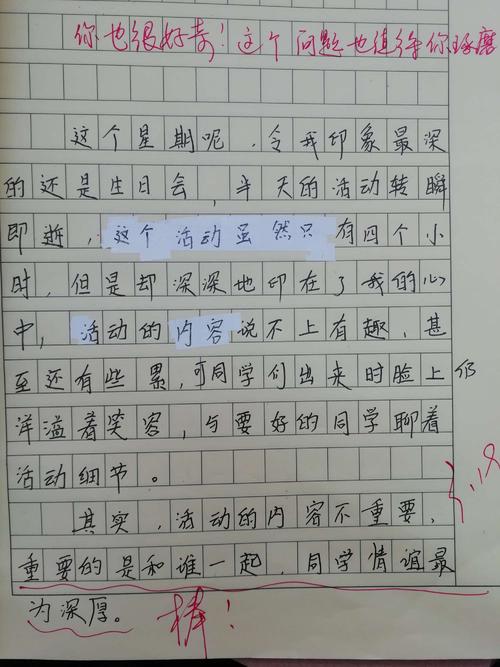 你也很好奇！这个问题也值得你琢磨
这个星期呢，令我印象最深
的还是生日会，半天的活动转瞬
即逝，这个活动虽然只有四个小
时，但是却深深地印在了我的心
中，活动的内容说不上有趣，甚
至还有些累，可同学们出来时脸上仍
洋溢着笑容，与要好的同学聊着
活动细节。
其实，活动的内容不重要，
重要的是和谁一起，同学情谊最
为深厚。
棒！